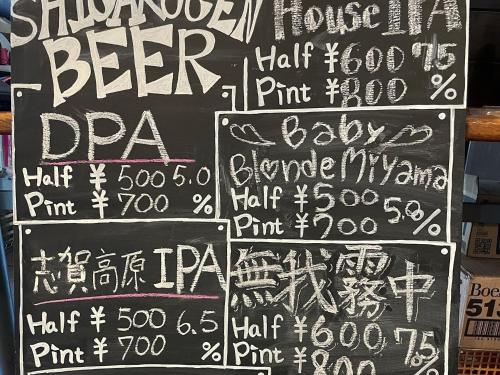 SHIGAKOGEN
BEER
House IPA
Half ¥600 7.5
Pint ¥800 %
DPA
Half ¥500 5.0
Pint ¥700 %
Baby
Bl♡nde Miyama
Half ¥500 5.0
Pint ¥700 %
志賀高原 IPA
Half ¥500 6.5
Pint ¥700 %
無我霧中
Half ¥600 7.5
Pint ¥800 %
Boe
513